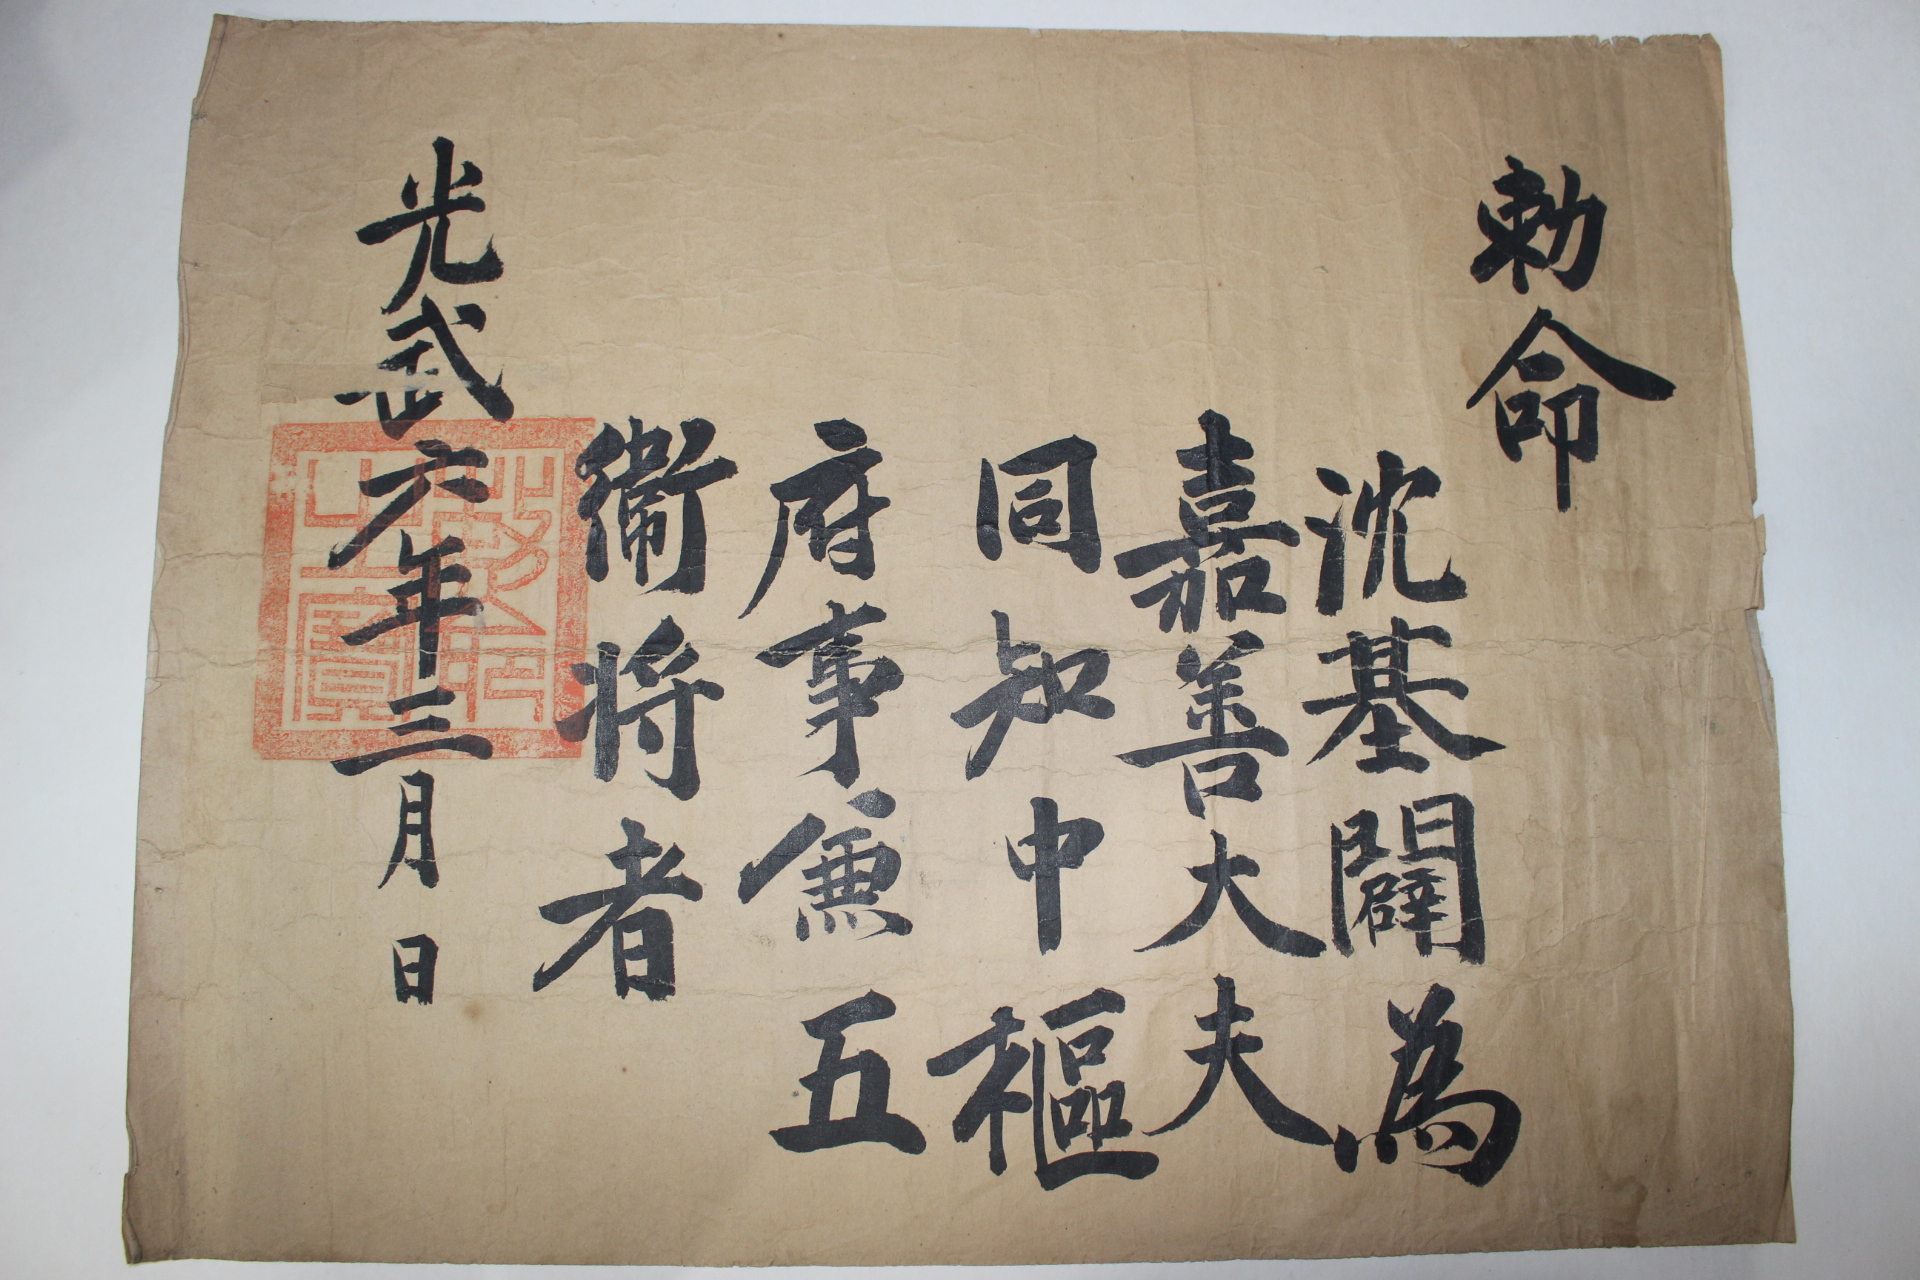 勅命
沈基闢為
嘉善大夫
同知中樞
府事兼五
衛將者
光武六年三月日